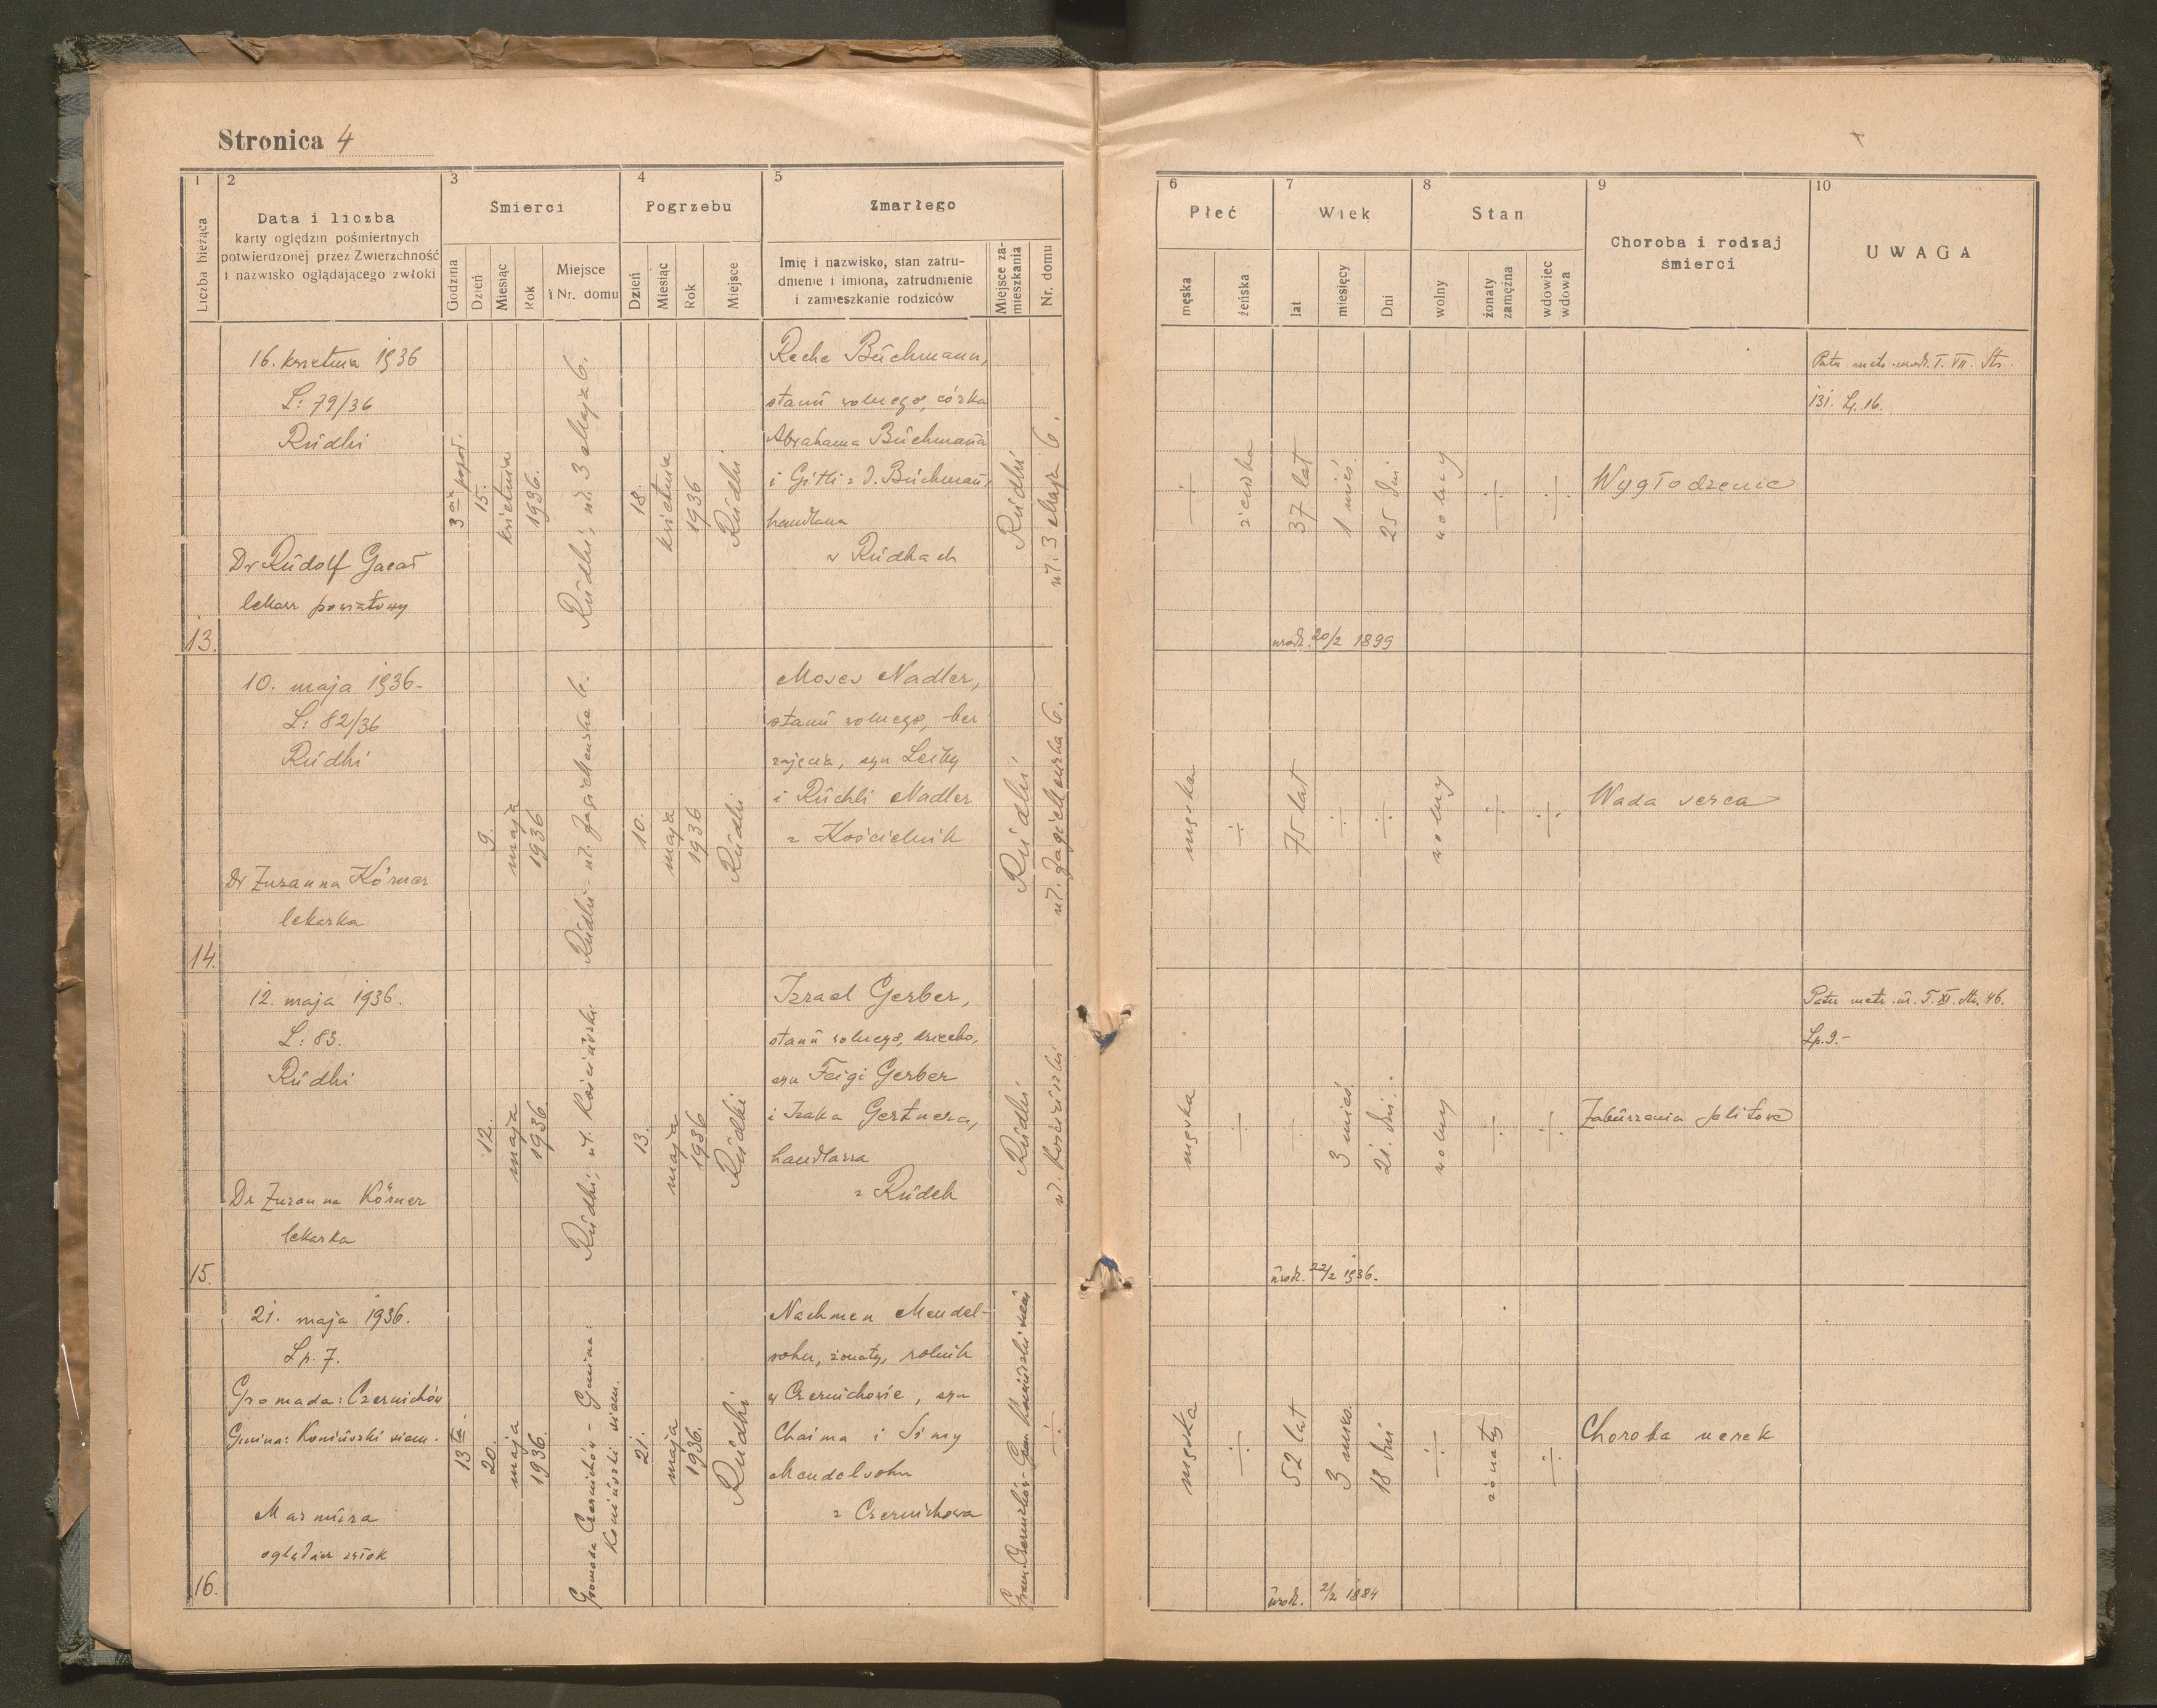 Stronica 4
1
2
3
4
5
Liczba bieżąca
Data i liczba
karty oględzin pośmiertnych
potwierdzonej przez Zwierzchność
i nazwisko oglądającego zwłoki
Smierci
Godzina
Dzień
Miesiąc
Rok
Miejsce
i Nr. domu
Pogrzebu
Dzień
Miesiąc
Rok
Miejsce
Zmarłego
Imię i nazwisko, stan zatru-
dnienie i imiona, zatrudnienie
i zamieszkanie rodziców
Miejsce za-
mieszkania
Nr. domu
6
7
8
9
10
Płeć
męska
żeńska
Wiek
lat
miesięcy
Dni
Stan
wolny
żonaty
zamężna
wdowiec
wdowa
Choroba i rodzaj
śmierci
UWAGA
13.
16. kwietnia 1936
L: 79/36
Rudki
Dr Rudolf
lekarz powiatowy
3 popoł.
15.
kwietnia
1936.
Rudki, ul. 3 Maja 6.
18.
kwietnia
1936
Rudki
Buchmann,
stanu wolnego, córka
Abrahama Buchmana
i Gitli z d. Buchman,
handlarza
w Rudkach
Rudki
ul. 3 Maja 6.
÷
żeńska
37 lat
1 mieś.
25 dni
wolny
÷
÷
Wygłodzenie
urodz. 20/2 1899
Patrz metr. urodz. T. VII. Str.
131. Lp. 16.
14.
10. maja 1936.
L: 82/36
Rudki
Dr Zuzanna Körner
lekarka
9.
maja
1936
Rudki - ul. Jagiellońska 6.
10.
maja
1936
Rudki
Moses Nadler,
stanu wolnego, bez
zajęcia, syn Leiby
i Ruchli Nadler
z Kościelnik
Rudki
ul. Jagiellońska 6.
męska
÷
75 lat
÷
÷
wolny
÷
÷
Wada serca
15.
12. maja 1936.
L: 83.
Rudki
Dr Zuzanna Körner
lekarka
12.
maja
1936.
Rudki, ul. Kościuszki
13.
maja
1936
Rudki
Izrael Gerber,
stanu wolnego, dziecko,
syn Feigi Gerber
i Izaka Gertnera,
handlarza
z Rudek
Rudki
ul. Kościuszki
męska
÷
÷
3 mieś.
21. dni.
wolny
÷
÷
Zaburzenia jelitowe
urodz. 22/2 1936.
Patrz metr. ur. T. XI. Str. 46.
Lp. 9.-
16.
21. maja 1936.
Lp. 7.
Gromada: Czernichów
Gmina: Koniuszki siem.
oglądacz zwłok
13ta
20.
maja
1936.
Gromada Czernichów - Gmina:
Koniuszki siem.
21.
maja
1936.
Rudki
Nachmen Mendel-
sohn, żonaty, rolnik
w Czernichowie, syn
Chaima i Simy
Mendelsohn
z Czernichowa
Grom. Czernichów - Gm. Koniuszki siem.
÷
męska
÷
52 lat
3 mies.
18 dni
÷
żonaty
÷
Choroba nerek
urodz. 2/2 1884